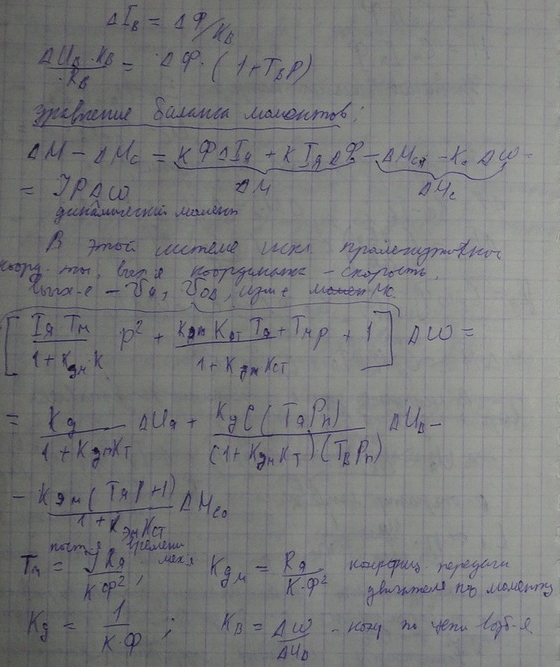 ΔIв = ΔФ/Kв
ΔUв · Kв / Rв = ΔФ · (1+TвP)
уравнение баланса моментов:
ΔM − ΔMс = KФΔIя + KIяΔФ − ΔMсо − Kс Δω =
ΔM ΔMс
= JPΔω
динамический момент
В этой системе искл. промежуточные
коорд-ты, вых-я координата – скорость.
Вых-е – Uя, Uов,
[ Iя Tм / 1 + Kдм · K p² + Kдм Kст Tя + Tм p + 1 / 1 + Kдм Kст ] Δω =
= Kд / 1 + Kдм Kт ΔUя + Kд C (Tя Pп) / (1 + Kдм Kт) (Tв Pп) ΔUв −
− Kдм (Tя P + 1) / 1 + Kдм Kст ΔMсо
пост-я времени
Tм = JRя / KФ² ; мех-я Kдм = Rя / K·Ф² коэффиц передачи
двигателя по моменту
Kд = 1 / K·Ф ; Kв = Δω / ΔUв – коэф. по цепи возб-я